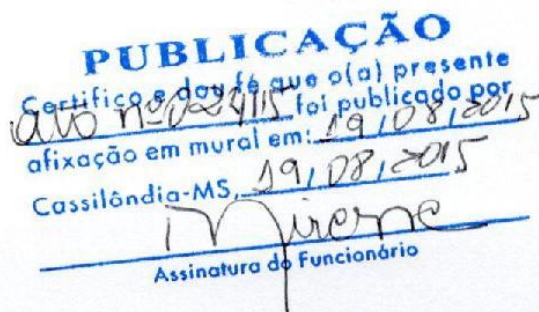 PUBLICAÇÃO
Certifico e dou fé que o(a) presente
ato nº 024/15 foi publicado por
afixação em mural em: 19/08/2015
Cassilândia-MS, 19/08/2015
Mirene
Assinatura do Funcionário